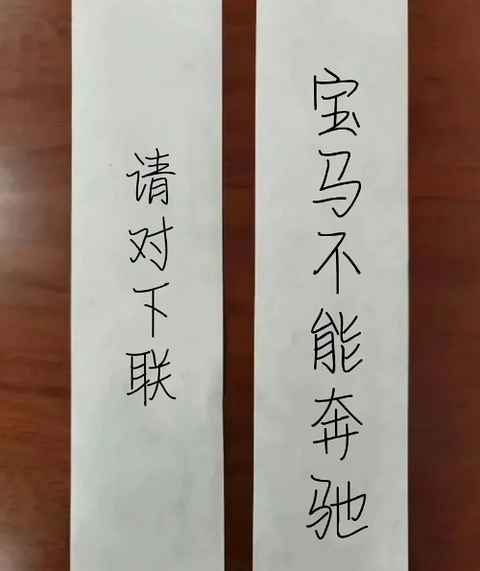 宝马不能奔驰
请对下联